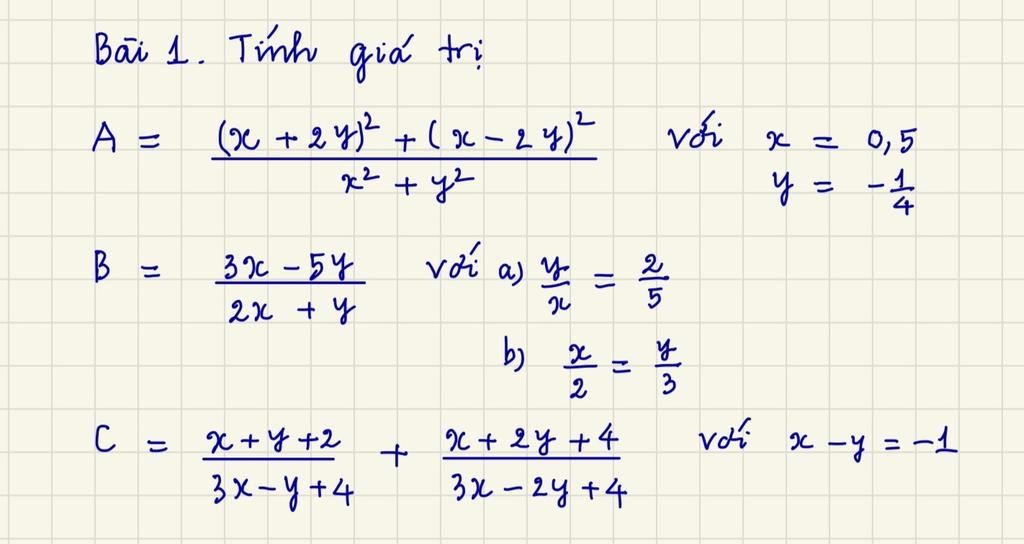 Bài 1. Tính giá trị
A = ((x + 2y)² + (x - 2y)²)/(x² + y²) với x = 0,5
y = -1/4
B = (3x - 5y)/(2x + y) với a) y/x = 2/5
b) x/2 = y/3
C = (x + y + 2)/(3x - y + 4) + (x + 2y + 4)/(3x - 2y + 4) với x - y = -1